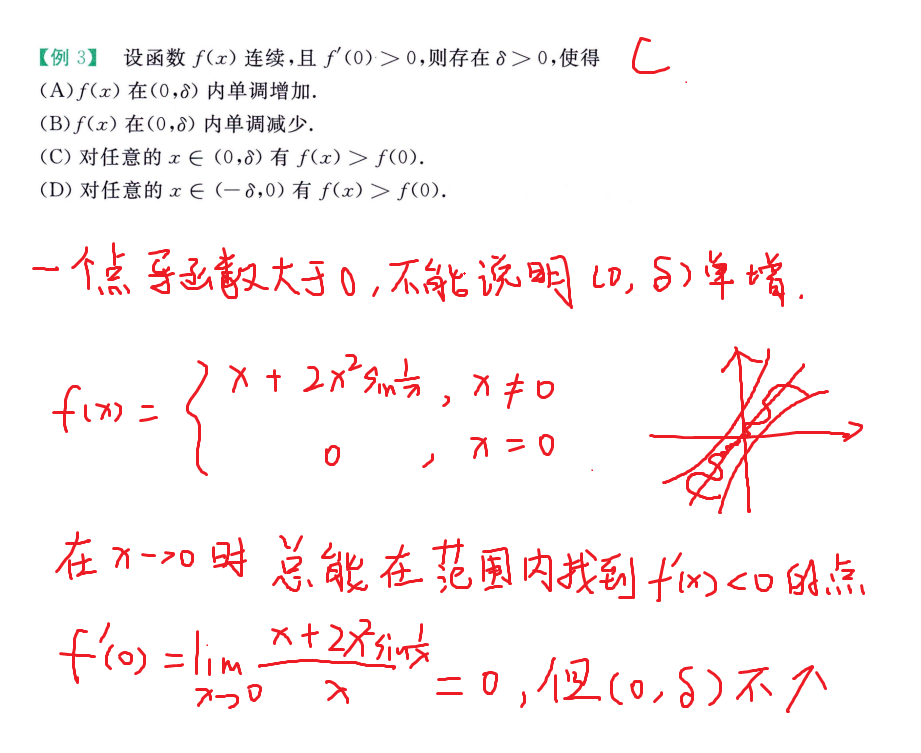 【例 3】 设函数 f(x) 连续,且 f′(0)>0,则存在 δ>0,使得 C
(A) f(x) 在(0,δ) 内单调增加.
(B) f(x) 在(0,δ) 内单调减少.
(C) 对任意的 x ∈ (0,δ) 有 f(x) > f(0).
(D) 对任意的 x ∈ (-δ,0) 有 f(x) > f(0).
一个点导函数大于0,不能说明(0,δ)单增.
f(x) = { x + 2x² sin 1/x , x ≠ 0
0 , x = 0
在 x→0 时 总能在范围内找到 f′(x)<0 的点
f′(0) = lim x→0 (x + 2x² sin 1/x)/x = 0 , 但(0,δ)不↗